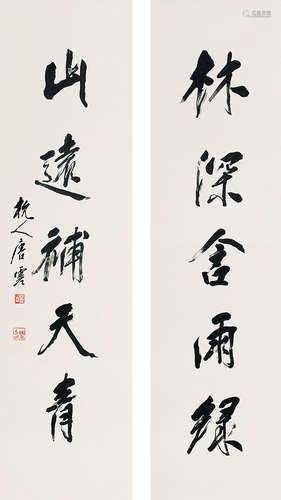 林深含雨綠
山遠補天青
杭人唐雲